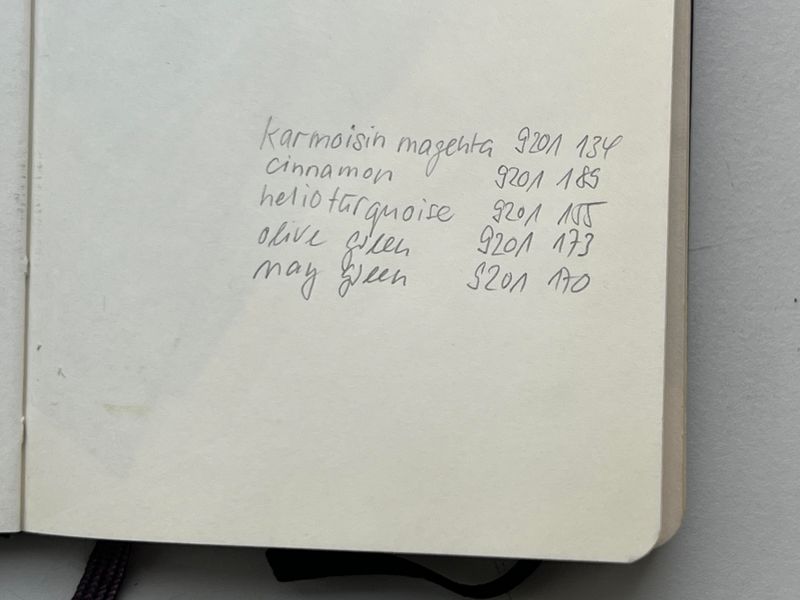 karmoisin magenta 9201 134
cinnamon 9201 189
helioturquoise 9201 155
olive green 9201 173
may green 9201 170